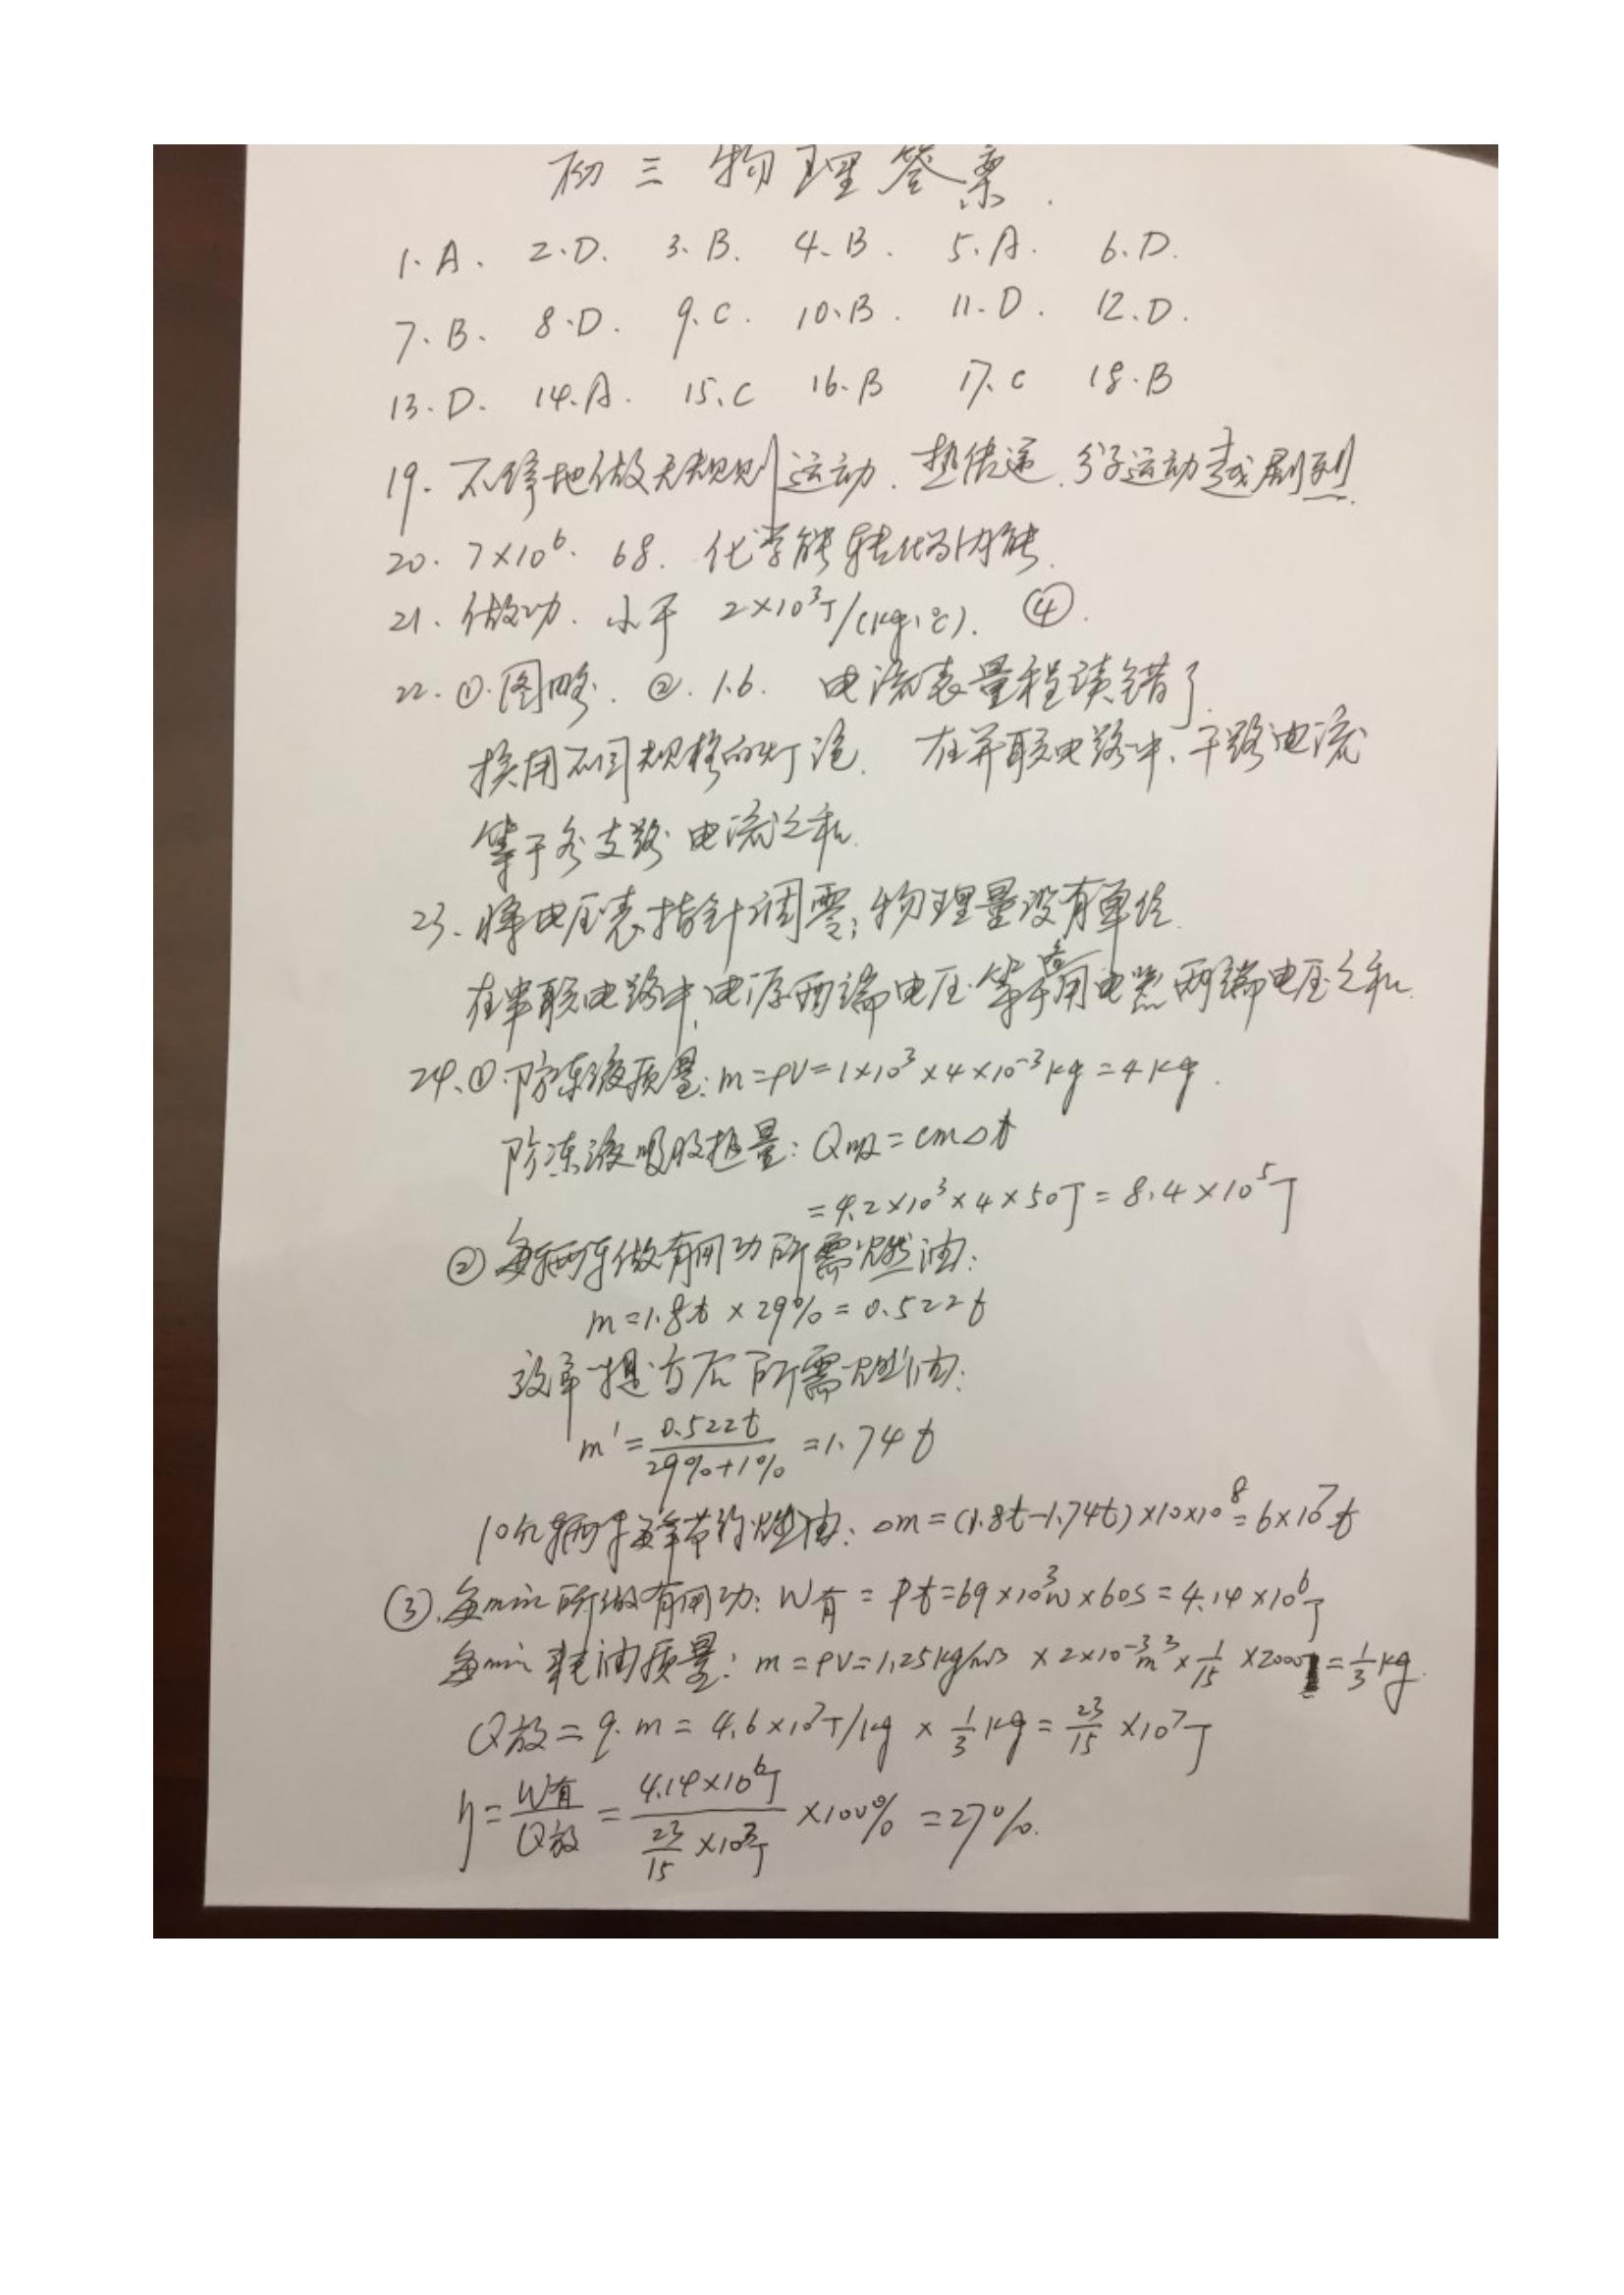 初三物理答案.
1. A. 2. D. 3. B. 4. B. 5. A. 6. D.
7. B. 8. D. 9. C. 10. B. 11. D. 12. D.
13. D. 14. A. 15. C 16. B 17. C 18. B
19. 不停地做无规则运动. 热传递. 分子运动越剧烈.
20. 7×10⁶. 68. 化学能转化为内能.
21. 做功. 小于 2×10³J/(kg·℃). ④.
22. ①图略. ②. 1.6. 电流表量程读错了.
换用不同规格的灯泡. 在并联电路中, 干路电流
等于各支路电流之和.
23. 将电压表指针调零; 物理量没有单位.
在串联电路中, 电源两端电压等于各用电器两端电压之和.
24. ①. 防冻液质量: m=ρV=1×10³×4×10⁻³kg=4kg.
防冻液吸收热量: Q吸=cmΔt
=4.2×10³×4×50J=8.4×10⁵J
② 每辆车做有用功所需燃油:
m=1.8t×29%=0.522t
效率提高后所需燃油:
m'=0.522t/(29%+1%)=1.74t
10亿辆车每年节约燃油: Δm=(1.8t-1.74t)×10×10⁸=6×10⁷t
③. 每min所做有用功: W有=Pt=69×10³W×60s=4.14×10⁶J
每min耗油质量: m=ρV=1.25kg/m³×2×10⁻³m³×1/15×2000=1/3kg.
Q放=q·m=4.6×10⁷J/kg×1/3kg=23/15×10⁷J
η=W有/Q放=4.14×10⁶J/(23/15×10⁷J)×100%=27%.